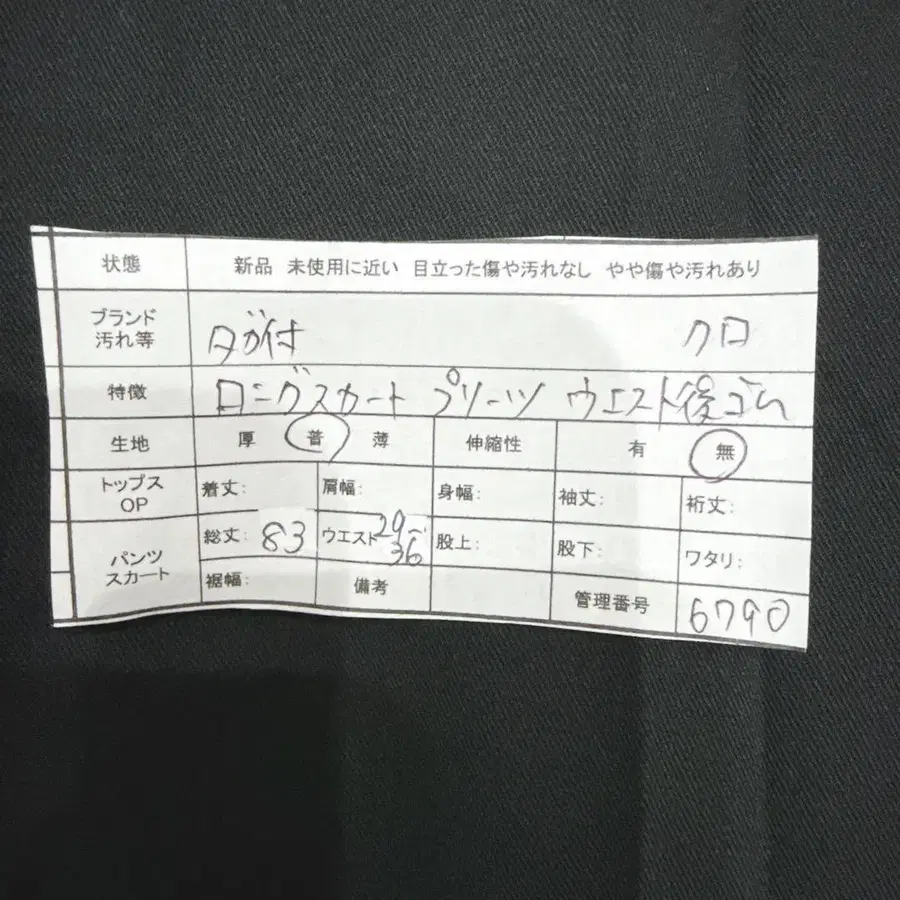 状態 新品 未使用に近い 目立った傷や汚れなし やや傷や汚れあり
ブランド
汚れ等 タグ付 クロ
特徴 ロングスカート プリーツ ウエスト後ゴム
生地 厚 普 薄 伸縮性 有 無
トップス
OP 着丈: 肩幅: 身幅: 袖丈: 裄丈:
パンツ
スカート 総丈: 83 ウエスト 29~36 股上: 股下: ワタリ:
裾幅: 備考 管理番号 6790